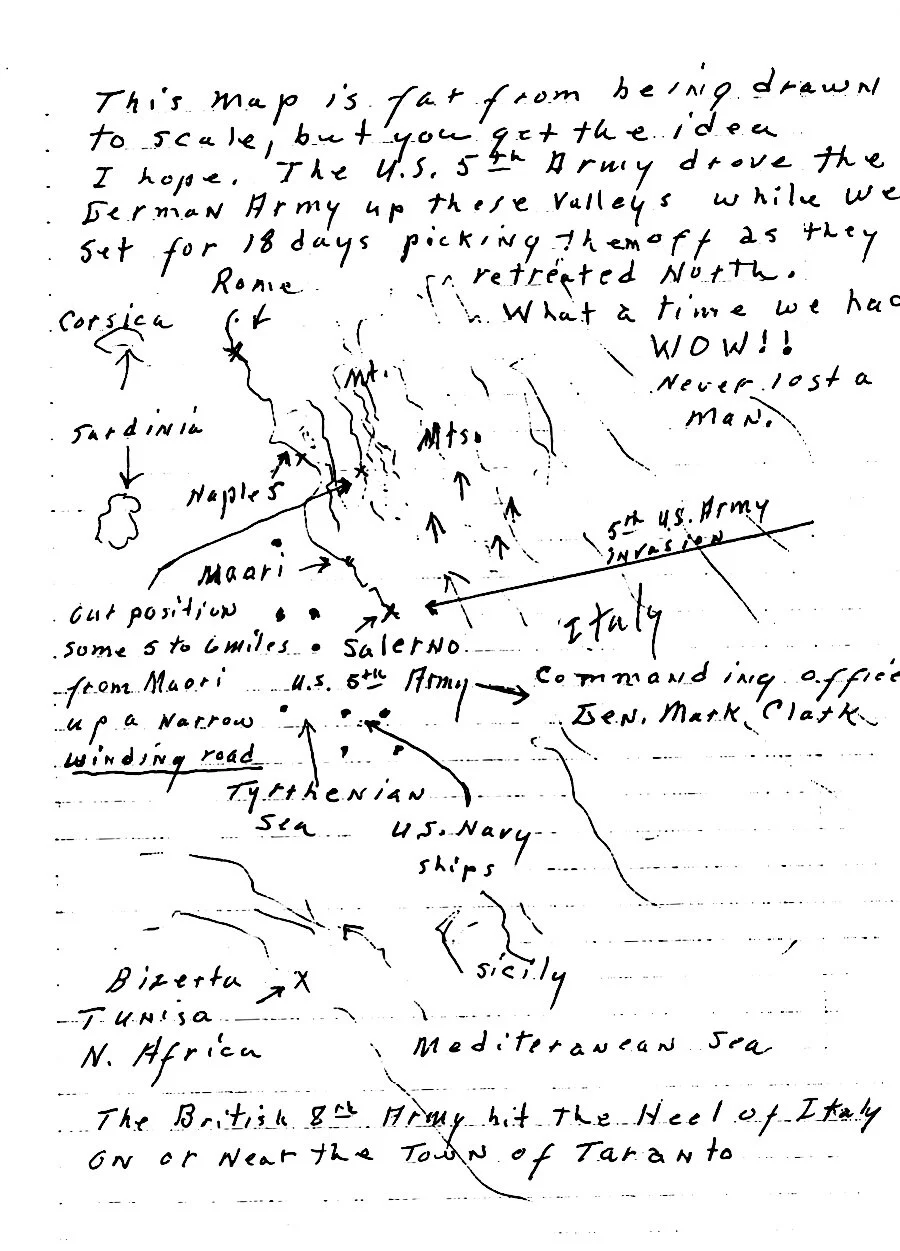 This map is far from being drawn
to scale, but you get the idea
I hope. The U.S. 5th Army drove the
German Army up these valleys while we
set for 18 days picking them off as they
retreated North.
What a time we had
WOW!!
Never lost a
man.
Rome
Corsica
Mt.
Sardinia
Mts.
Naples
5th U.S. Army
invasion
Maori
Italy
our position
some 5 to 6 miles
from Maori
up a narrow
winding road
Salerno
U.S. 5th Army
Commanding office
Gen. Mark Clark
Tyrrhenian
Sea
U.S. Navy
ships
Sicily
Bizerta
Tunisa
N. Africa
Mediteranean Sea
The British 8th Army hit the Heel of Italy
on or near the Town of Taranto